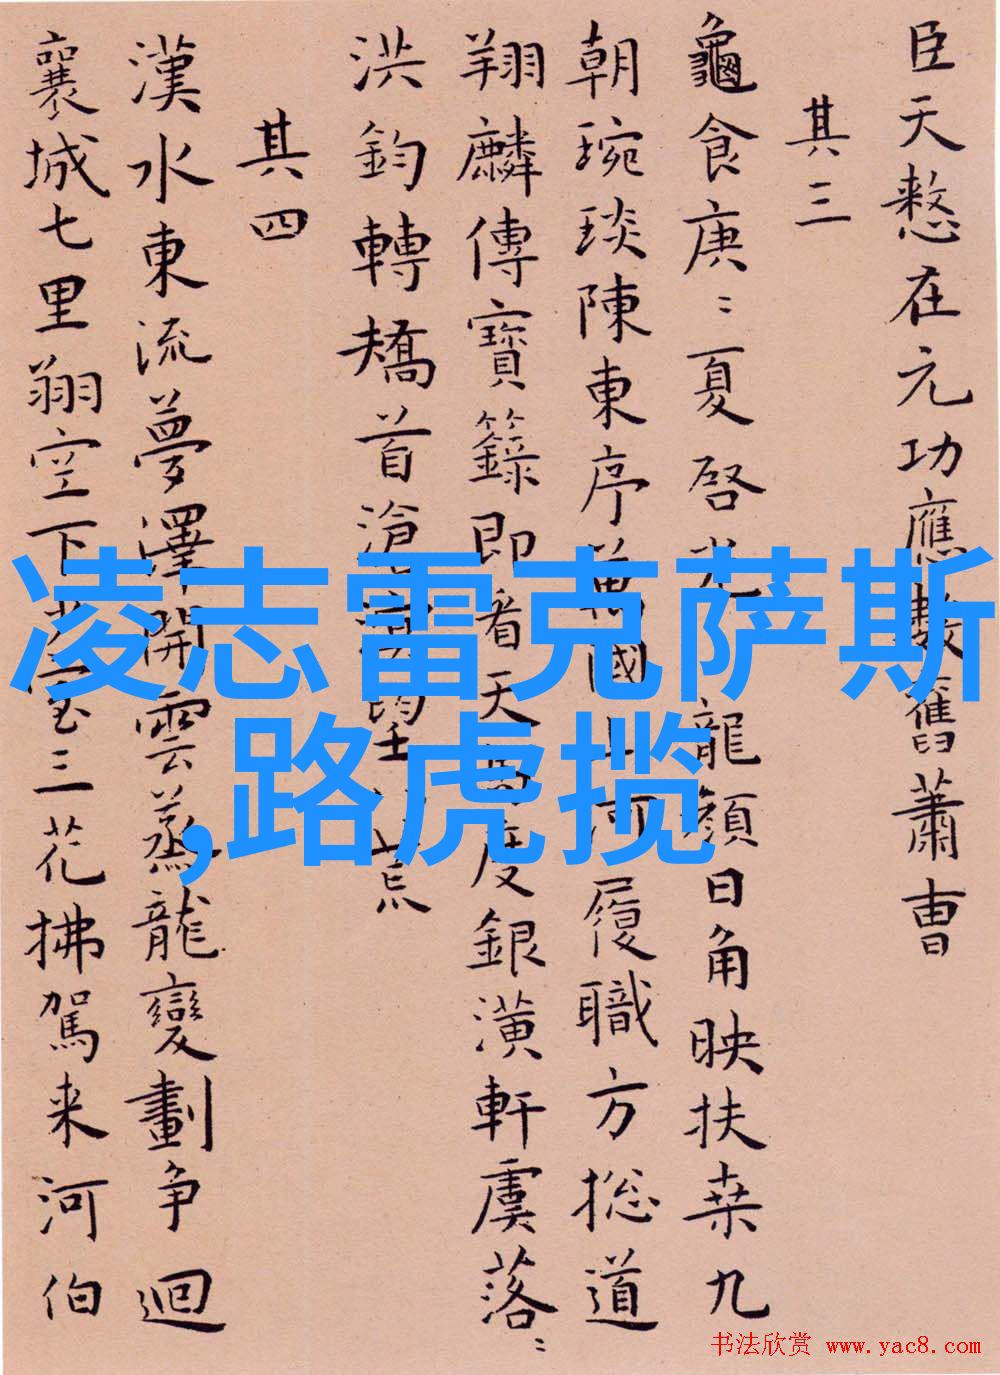 臣天憗在元功應數舊蕭曹
其三
龜食庚〻夏啓光龍顏日角映扶桒九
朝琬琰陳東序萬國山河履職方捴道
翔麟傳寶籙即看天度銀潢軒虞落〻
洪鈞轉矯首滄望荒
其四
漢水東流夢澤開雲蒸龍變劃争迴
襄城七里翔空下少室三花拂駕来河伯
凌志雷克萨斯
,路虎揽
书法欣赏 www.yac8.com